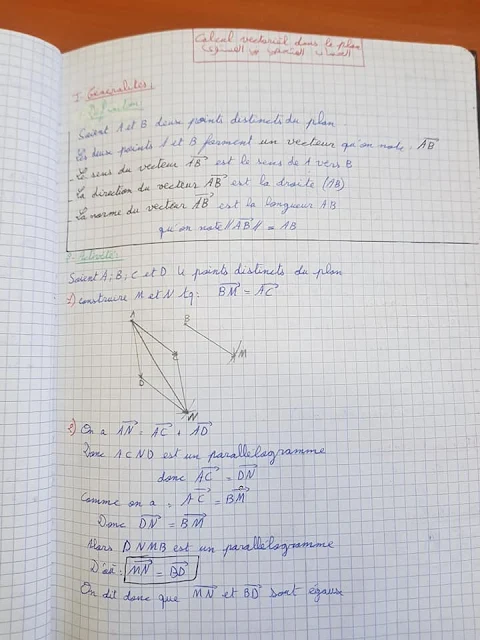 Calcul vectoriel dans le plan
الحساب المتجهي في المستوى
I. Généralités:
1. Définition:
Soient A et B deux points distincts du plan.
Les deux points A et B forment un vecteur qu'on note: AB
Le sens du vecteur AB est le sens de A vers B
La direction du vecteur AB est la droite (AB)
La norme du vecteur AB est la longueur AB
qu'on note ||AB|| = AB
2. Activités:
Soient A; B; C et D 4 points distincts du plan
1) construire M et N tq: BM = AC
A
B
C
M
D
N
2) On a AN = AC + AD
Donc ACND est un parallélogramme
donc AC = DN
Comme on a, AC = BM
Donc DN = BM
Alors DNMB est un parallélogramme
D'où: MN = BD
On dit donc que MN et BD sont égaux